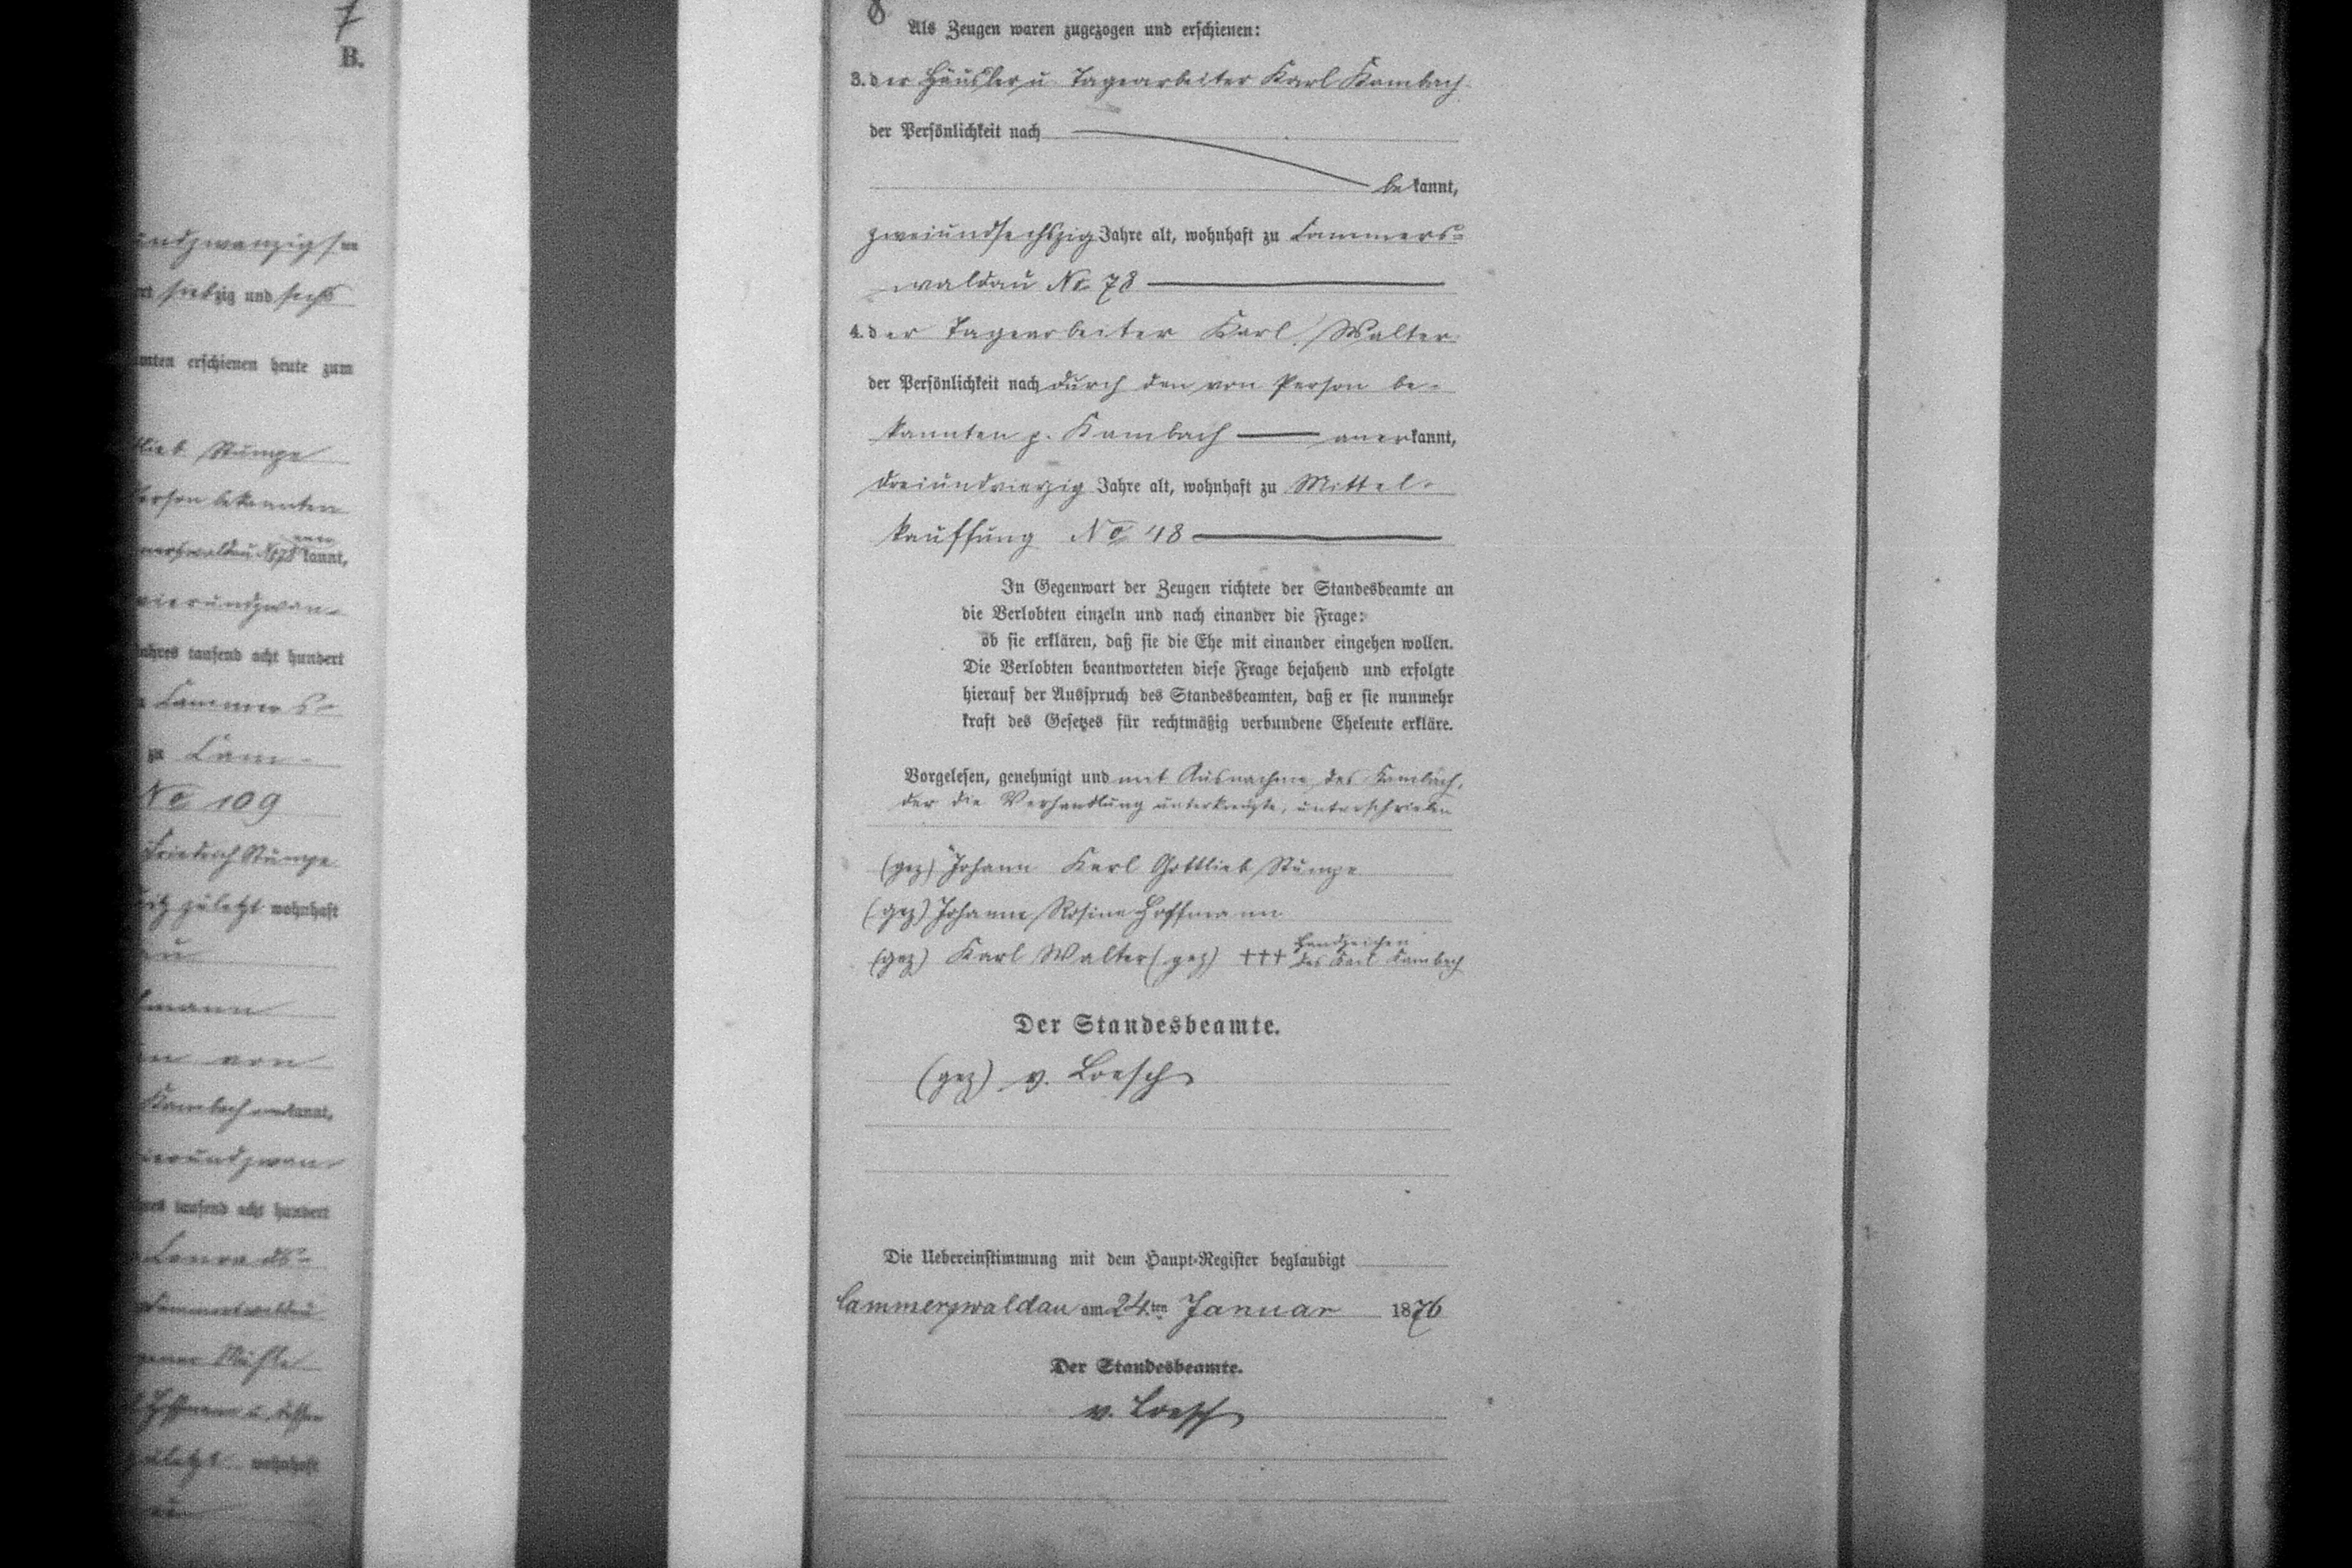 7
B.
undzwanzigsten
siebzig und sechs
amten erschienen heute zum
lieb Stumpe
Person bekannten
merswaldau No 78 anerkannt,
vierundzwan-
Jahres tausend acht hundert
Cammers-
zu Cam-
No 109
Friedrich Stumpe
zuletzt wohnhaft
au
fmann
von
Kambach anerkannt,
vierundzwan-
tausend acht hundert
Conrads-
Cammerswaldau
Hoffmann u. dessen
zuletzt wohnhaft
au
8
Als Zeugen waren zugezogen und erschienen:
3. der Häusler u Tagearbeiter Karl Kambach
der Persönlichkeit nach
bekannt,
zweiundsechszig Jahre alt, wohnhaft zu Cammers-
waldau No 78
4. der Tagearbeiter Karl Walter
der Persönlichkeit nach durch den von Person be-
kannten p. Kambach anerkannt,
dreiundvierzig Jahre alt, wohnhaft zu Mittel-
kauffung No 48
In Gegenwart der Zeugen richtete der Standesbeamte an
die Verlobten einzeln und nach einander die Frage:
ob sie erklären, daß sie die Ehe mit einander eingehen wollen.
Die Verlobten beantworteten diese Frage bejahend und erfolgte
hierauf der Ausspruch des Standesbeamten, daß er sie nunmehr
kraft des Gesetzes für rechtmäßig verbundene Eheleute erkläre.
Vorgelesen, genehmigt und mit Ausnahme des Kambach,
der die Verhandlung unterkreuzte, unterschrieben
(gez) Johann Karl Gottlieb Stumpe
(gez) Johanne Rosine Hoffmann
(gez) Karl Walter (gez) +++ Handzeichen
des Karl Kambach
Der Standesbeamte.
(gez) v. Loesch
Die Uebereinstimmung mit dem Haupt-Register beglaubigt
Cammerswaldau am 24ten Januar 1876
Der Standesbeamte.
v. Loesch